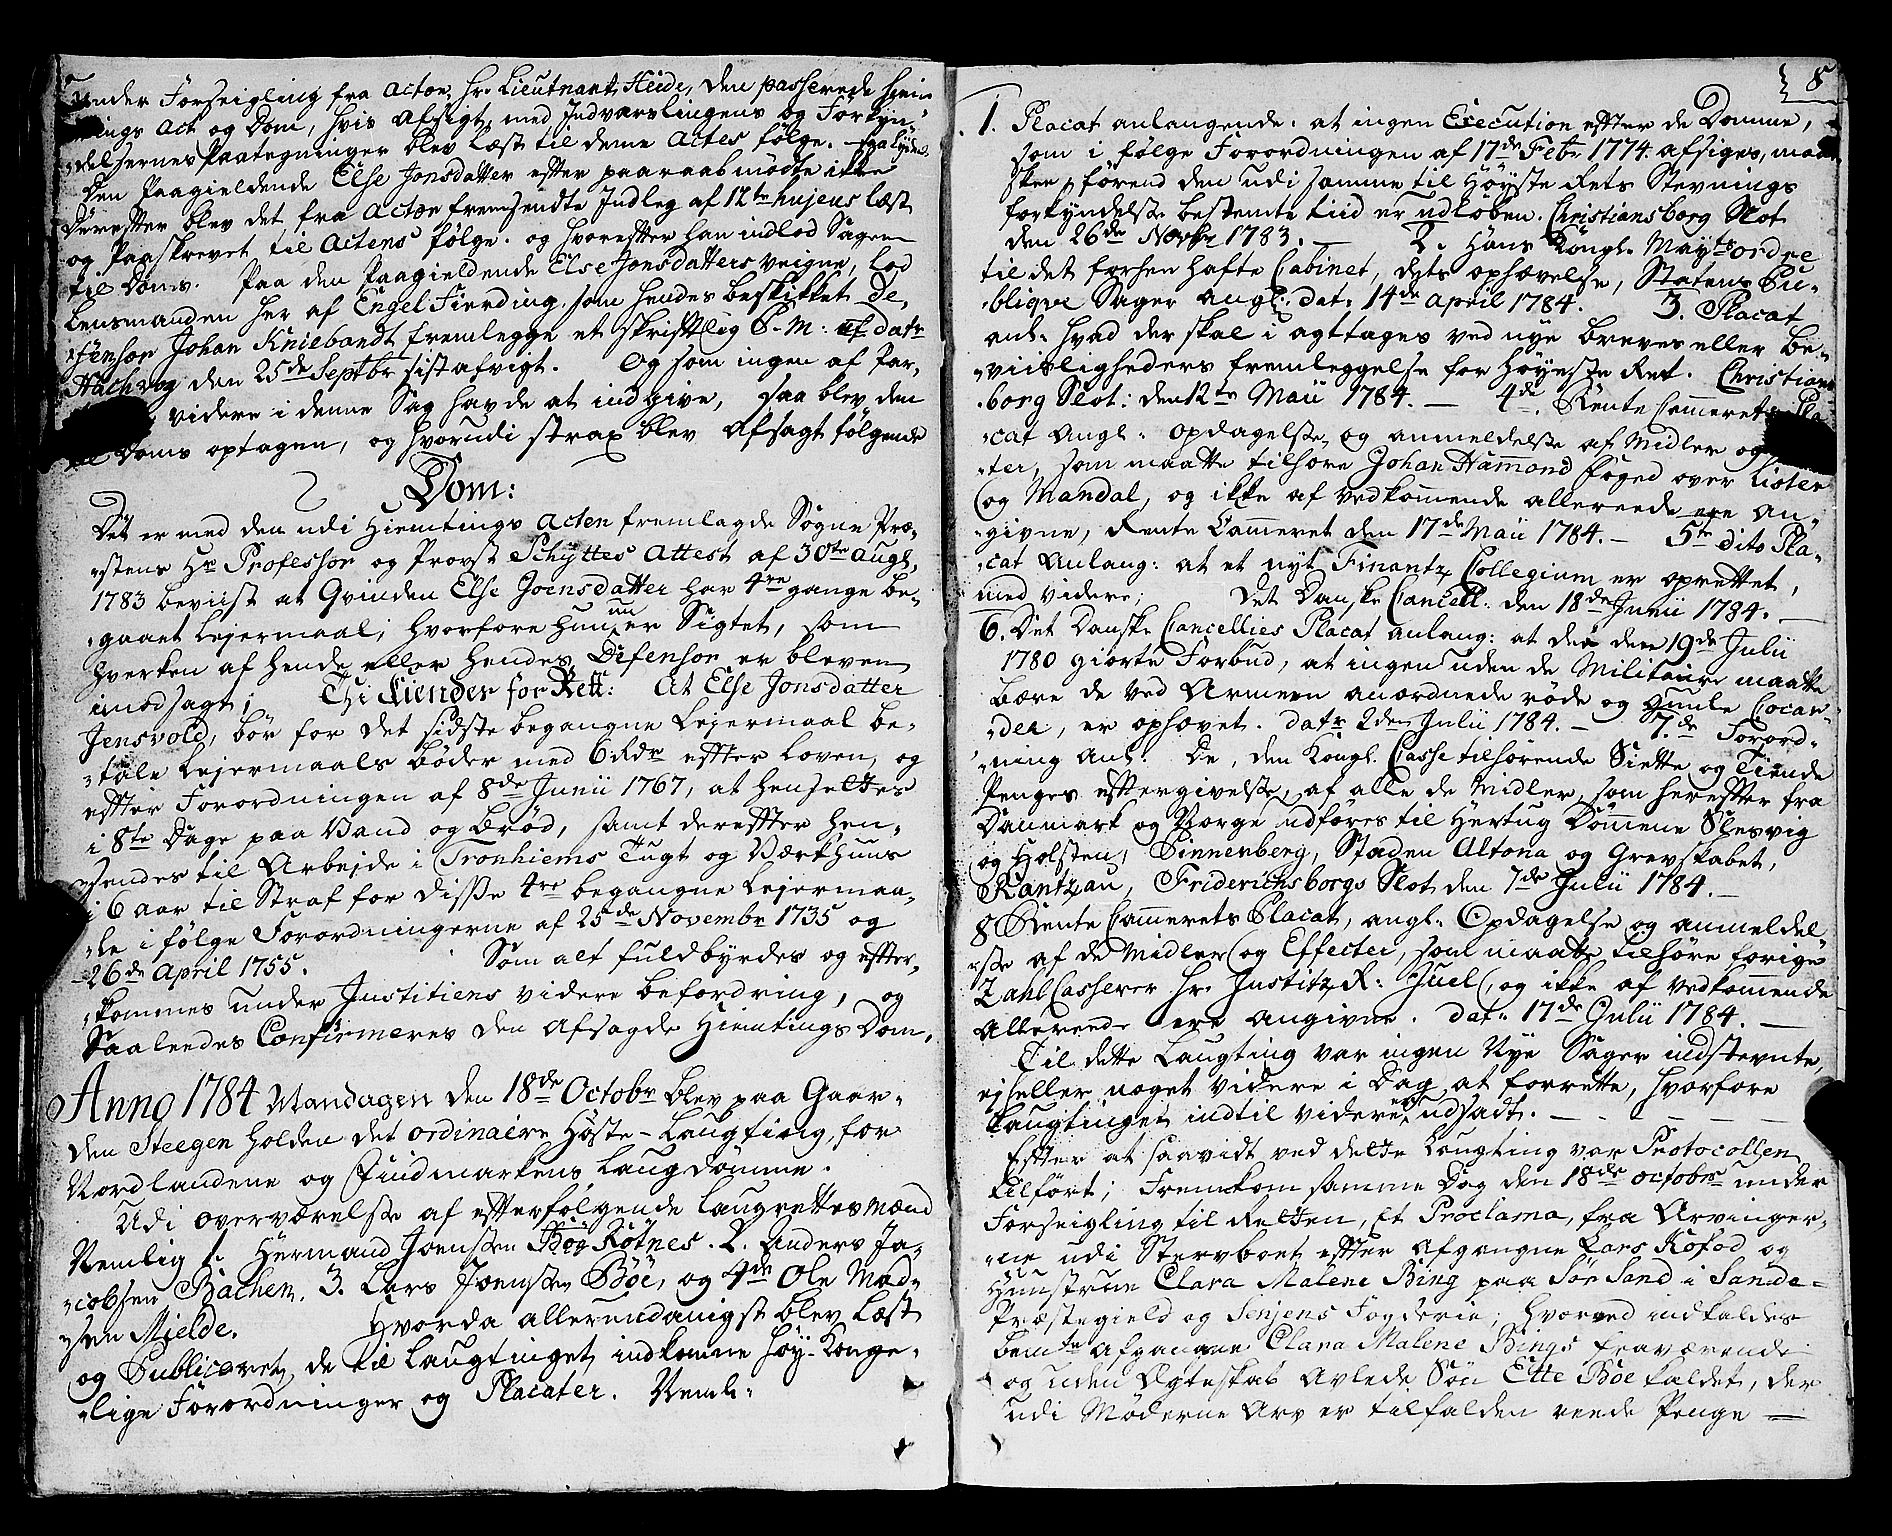 under Forseigling fra Acton, Hr. Lieutnant Heide, den passerede Hiem
tings Act og Dom, hvis Afsigt, med Indvarslingens og Forkyn-
-delsernes Paategninger blev læst til denne Actes følge. saa lydende
Den Paagieldende Else Jonsdatter efter paaraab mødte ikke
Derefter blev det fra Acton fremsendte Indleg af 12te hujens læst
og Paaskrevet til Actens følge. og hvorefter han indlod Sagen
til Doms. Paa den Paagieldende Else Jonsdatters veigne, lod
Lensmanden her af Engel Fierding, som hendes beskikket De-
-fensor Johan Kniebandt fremlegge et skriftlig P.M: datr
den 25de Septbr sistafvigt. Og som ingen af Par-
videre i denne Sag havde at indgive, saa blev den
til Doms optagen, og hvorudi strax blev Afsagt følgende
Dom:
Det er med den udi Hiemtings Acten fremlagde Sogne Præ-
-stens Hr Professor og Provst Schyttes Attest af 30te Augl.
1783 beviist at Qvinden Else Joensdatter har 4re gange be-
-gaaet Lejermaal; hvorfore hun nu er Sigtet, som
hverken af hende eller hendes Difensor er bleven
imodsagt; Thi Kiendes for Rett: At Else Jonsdatter
Jensvold, bør for det sidste begangne Lejermaal be-
-tale Lejermaals bøder med 6 Rdr efter Loven, og
efter Forordningen af 8de Junii 1767, at henseltes
i 8te Dage paa Vand og Brød, samt derefter hen-
-sendes til Arbejde i Tronhiems Tugt og Værkhuus
i 6 aar til Straf for disse 4re begangne Lejermaa-
-le i følge Forordningerne af 25de Novembr 1735 og
26de April 1755. Som alt fuldbyrdes og efter-
-kommes under Justitiens videre befordring, og
Saaleedes Confirmeres den afsagde Hiemtings Dom.
Anno 1784 Mandagen den 18de Octobr blev paa Gaar-
den Steegen holden det ordinaire Høste-Laugting, for
Nordlandene og Findmarkens Laugdømme.
Udi overværelse af efterfølgende Laugrettesmænd
Nemlig 1. Hermand Joenssen Bøe Røtnes. 2. Anders Ja-
-cobsen Bachen. 3. Lars Joenssen Bøe, og 4de Ole Mad-
-sen Mielde. Hvorda allerundanigst blev læst
og Publiceret, de til Laugtinget indkomne høy-Konge-
-lige Forordninger og Placater. Neml:
8
1. Placat anlangende: at ingen Execution efter de Domme,
som i følge Forordningen af 17de Febr 1774. afsiges, maae
skee, førend den udi samme til Høyste Rets Stevnings
forkyndelse bestemte tiid er udløben. Christiansborg Slot
den 26de Novbr 1783. — 2. Hans Kongl. Mayts ordre
til det forhen hafte Cabinet, dets ophævelse, Statens Pu-
-bliqve Sager angl. dat: 14de April 1784. 3. Placat
anl: hvad der skal i agttages ved nye breves eller be-
-viisligheders fremleggelse for Høyeste Ret. Christians-
-borg Slot: den 12te Maii 1784. — 4de. Rente Cammerets Pla-
-cat Angl: opdagelse og anmeldelse af Midler og
-ter, som maatte tilhøre Johan Hammond foged over Lister
og Mandal, og ikke af vedkommende allereede ere an-
-givne, Rente Cammeret den 17de Maii 1784. — 5te dito Pla-
-cat Anlang: at et nyt Finantz Collegium er oprettet,
med videre; Det Danske Cancell: den 18de Junii 1784. —
6. Det Danske Cancellies Placat anlang: at det den 19de Julii
1780 giorte Forbud, at ingen uden de Militaire maatte
bære de ved Armeen anordnede røde og Huule Cocar-
-der, er ophævet. datr 2den Julii 1784. — 7de Forord-
-ning anl: De, den Kongl. Casse tilhørende Siette og Tiende
Penges eftergivelse, af alle de Midler, som herefter fra
Danmark og Norge udføres til Hertug Dømmene Slesvig
og Holsten, Pinnenberg, Staden Altona og Grevskabet,
Rantzau, Friderichsborgs Slot den 7de Julii 1784. —
8 Rente Cammerets Placat, angl. Opdagelse og anmeldel-
-se af de Midler og Effecter, som maatte tilhøre forige
Zahl Casserer Hr. Justitz R: Juel, og ikke af vedkommende
Allereede ere angivne. dat: 17de Julii 1784. —
Til dette Laugting var ingen Nye Sager indstevnte,
ej heller noget videre i Dag at forrette, hvorfore
Laugtinget indtil videre udsadt. — — —
Efter at saavidt ved dette Laugting var Protocollen
tilført; Fremkom samme Dag den 18de octobr under
Forseigling til Retten, Et Proclama, fra Arvinger-
-ne udi Stervboet efter Afgangne Lars Kofod og
Hunstrue Clara Malene Bing paa Sør Sand i Sande-
Præstegield og Senjens Fogderie, hvorved indkaldes
bemte afgangne Clara Malene Bings fraværende
og uden Ægteskab Avlede Søn Ette Bøe kaldet, der
udi Møderne Arv er tilfalden reede Penge —